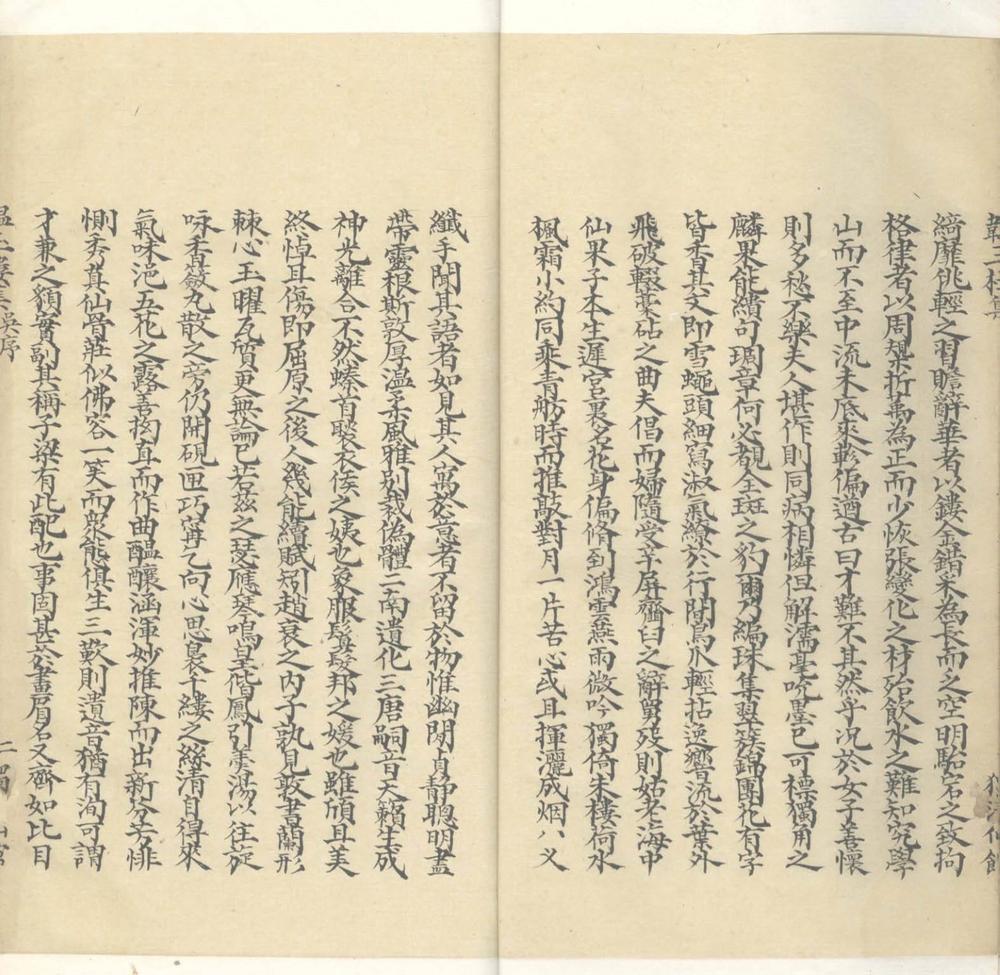 綺靡佻輕之習瞻辭華者以鏤金錯采為長而乏空明駘宕之致拘
格律者以周槼折萬為正而少恢張變化之材殆飲水之難知究學
山而不至中流未底來軫偏遒古曰才難不其然乎况於女子善懷
則多愁不樂夫人堪作則同病相憐但解濡毫吮墨已可標獨角之
麟果能繢句琱章何必覩全斑之豹爾乃編珠集翠簇錦團花有字
皆香其文即雪蠅頭細寫淑氣繚於行間鳥爪輕拈逸響流於葉外
飛破輟藁砧之曲夫倡而婦隨受辛屏虀臼之辭舅歿則姑老海中
仙果子本生遲宮裏名花身偏脩到鴻雲燕雨微吟獨倚朱樓荷水
楓霜小約同乘青舫時而推敲對月一片苦心或且揮灑成烟八乂
纖手聞其語者如見其人寓於意者不留於物惟幽閑貞靜聰明盡
帶靈根斯敦厚溫柔風雅別裁偽體二南遺化三唐嗣音天籟生成
神光離合不然螓首褧衣侯之姨也象服鬒髮邦之媛也雖頎且美
終悼且傷即屈原之後人幾能續賦矧趙衰之內子孰見敭書蘭形
棘心玉曜瓦質更無論已若茲之琴應琴鳴皇偕鳳引羹湯以往旋
咏香籢丸散之旁仍開硯匣巧寗乞向心思裊千縷之絲清自得來
氣味浥五花之露善掐耳而作曲醞釀涵渾妙推陳而出新芬芳悱
惻秀其仙骨莊似佛容一笑而衆態俱生三歎則遺音猶有洵可謂
才兼之額實副其稱子梁有此配也事固甚於畫眉名又齊如比目